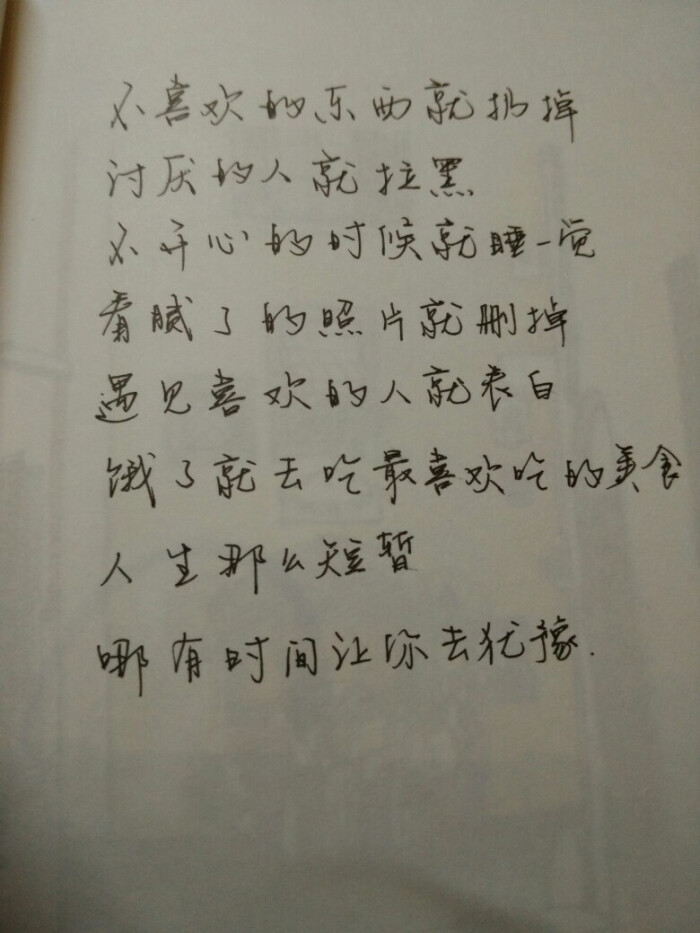 不喜欢的东西就扔掉
讨厌的人就拉黑
不开心的时候就睡一觉
看腻了的照片就删掉
遇见喜欢的人就表白
饿了就去吃最喜欢吃的美食
人生那么短暂
哪有时间让你去犹豫.